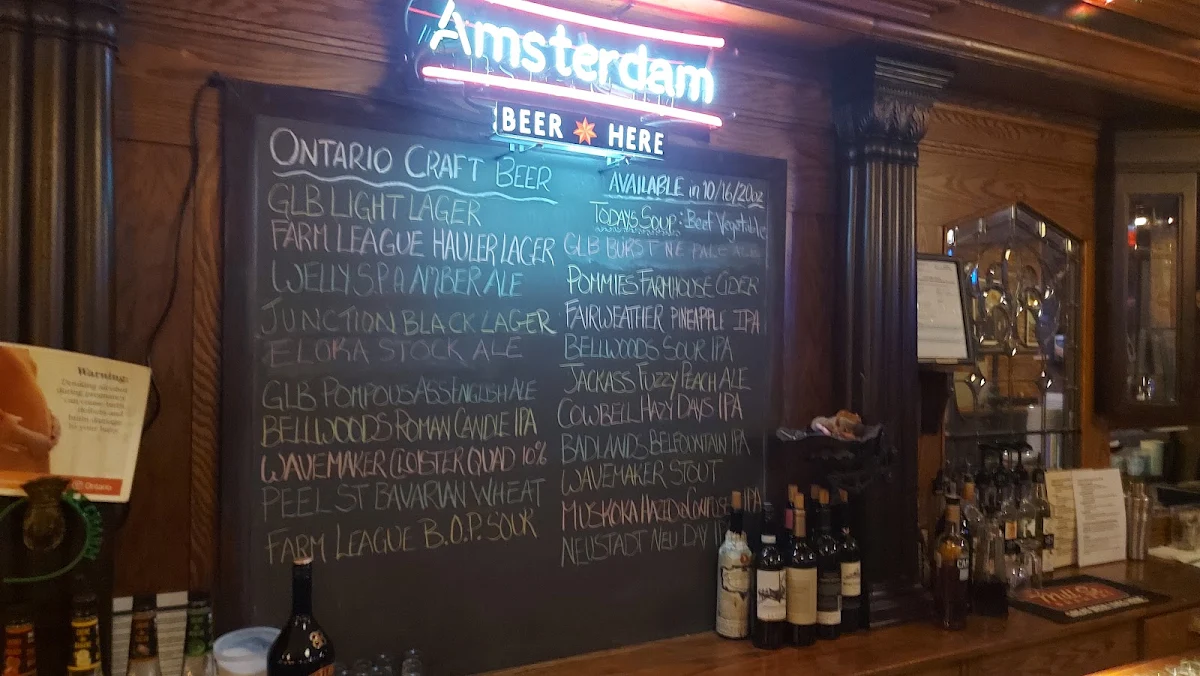 Amsterdam
BEER HERE
ONTARIO CRAFT BEER
GLB LIGHT LAGER
FARM LEAGUE HAULER LAGER
WELLY SPA AMBER ALE
JUNCTION BLACK LAGER
ELORA STOCK ALE
GLB POMPOUS ASS ENGLISH ALE
BELLWOODS ROMAN CANDLE IPA
WAVEMAKER CLOISTER QUAD 10%
PEEL ST BAVARIAN WHEAT
FARM LEAGUE B.O.P. SOUR
AVAILABLE in 10/16/20oz
TODAYS SOUP: Beef Vegetable
GLB BURST NE PALE ALE
POMMIES FARMHOUSE CIDER
FAIRWEATHER PINEAPPLE IPA
BELLWOODS SOUR IPA
JACKASS FUZZY PEACH ALE
COWBELL HAZY DAYS IPA
BADLANDS BELFOUNTAIN IPA
WAVEMAKER STOUT
MUSKOKA HAZED N CONFUSED IPA
NEUSTADT NEU DAY
Warning:
Drinking alcohol
during pregnancy
can cause birth
defects and
brain damage
to your baby
Ontario